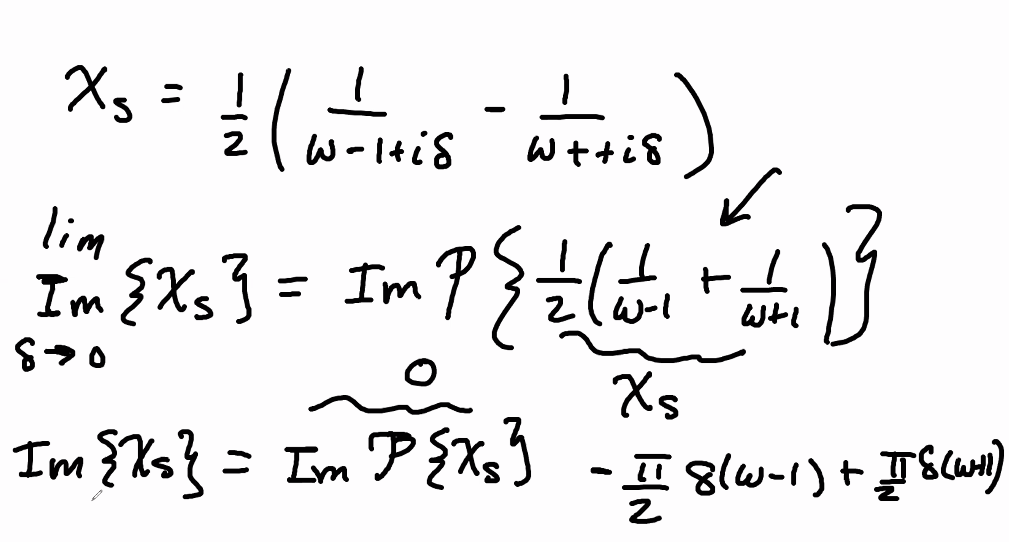 χ_s = 1/2 ( 1/(ω-1+iδ) - 1/(ω++iδ) )
lim Im {χ_s} = Im P { 1/2 ( 1/(ω-1) + 1/(ω+1) ) }
δ → 0
0
χ_s
Im {χ_s} = Im P {χ_s} - π/2 δ(ω-1) + π/2 δ(ω+1)